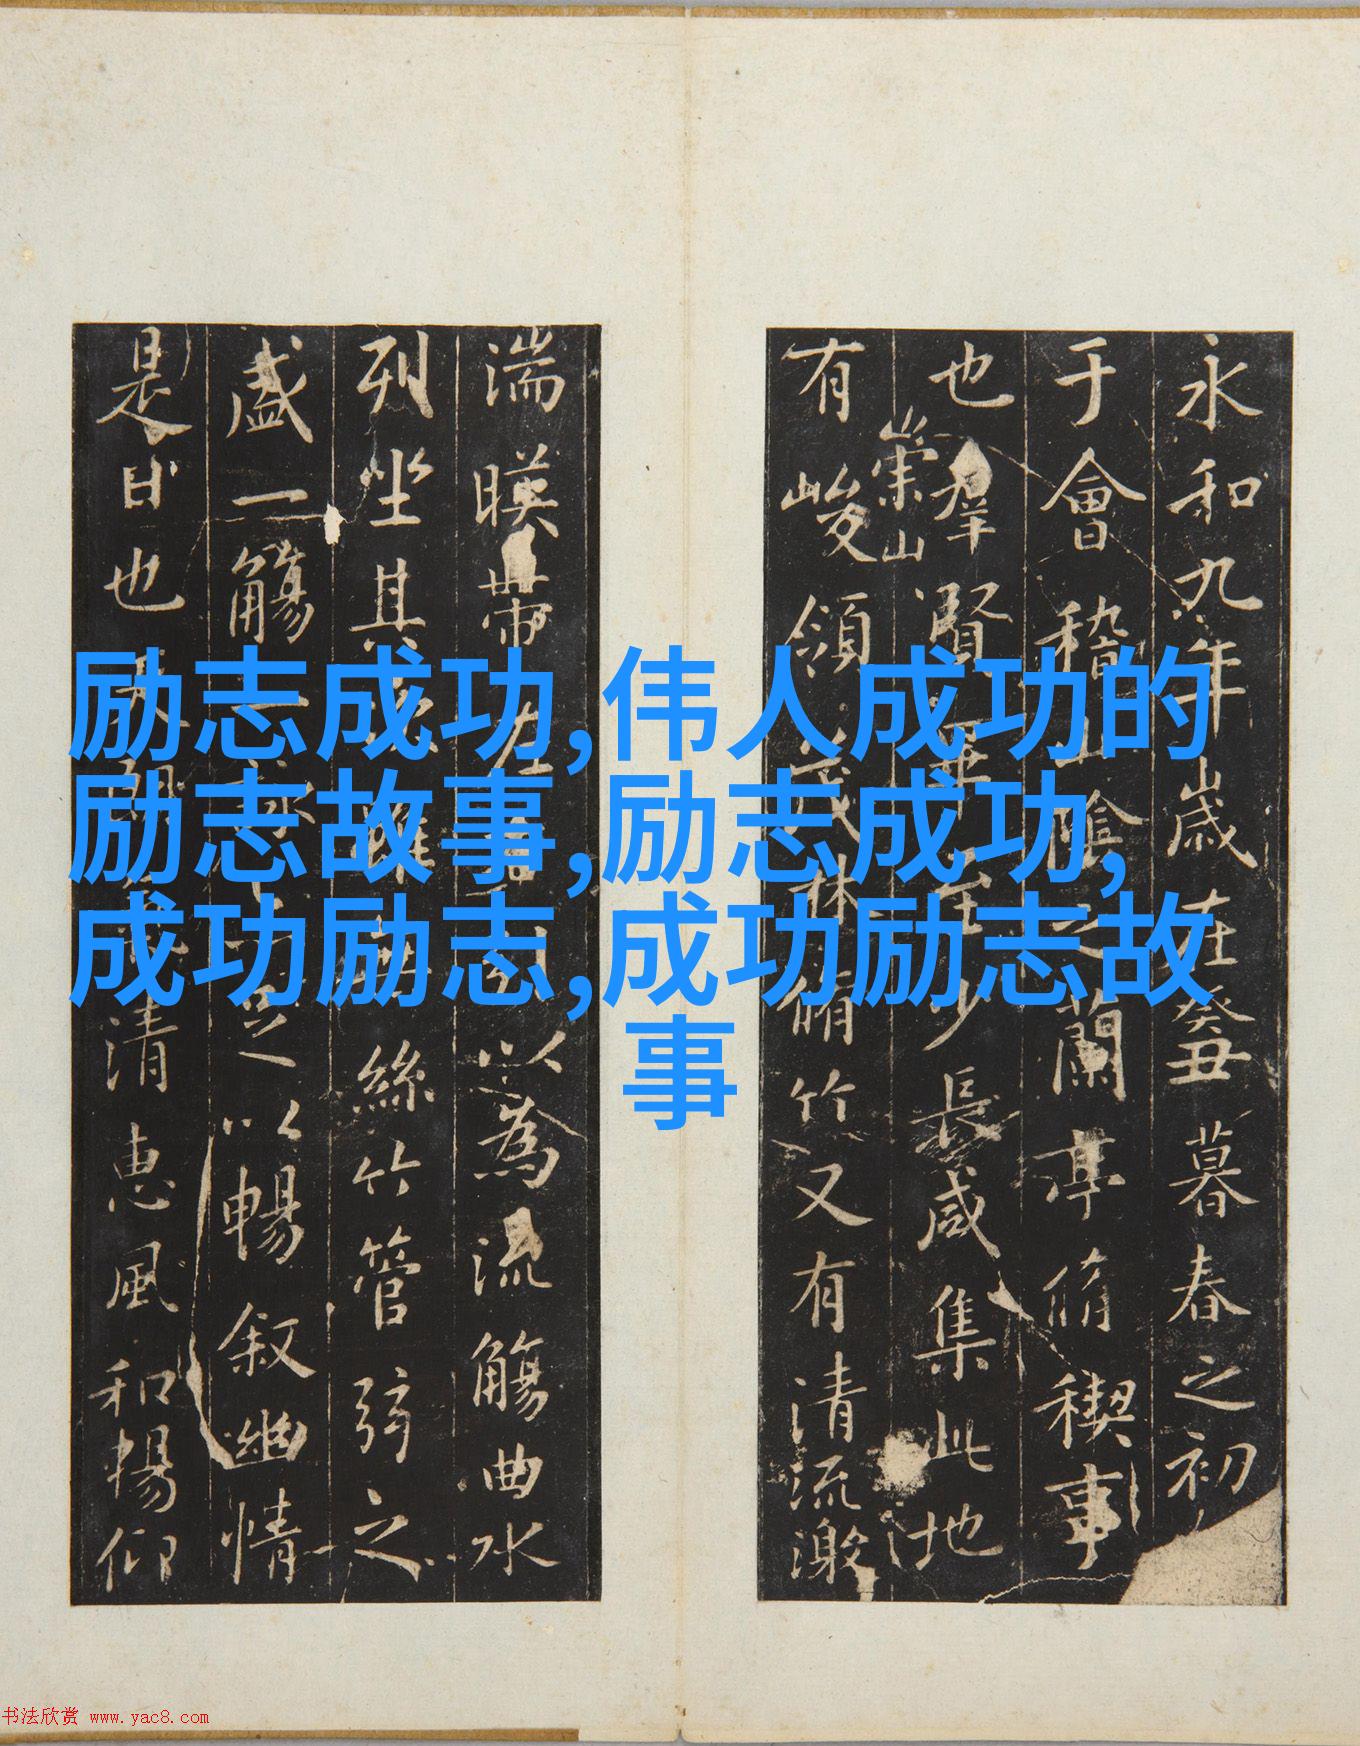 永和九年歲在癸丑暮春之初
于會稽山陰之蘭亭脩禊事
也羣賢畢至少長咸集此地
崇山
有峻領茂林脩竹又有清流激
湍暎帶左以為流觴曲水
列坐其雖無絲竹管弦之
盛一觴一詠足以暢敘幽情
是日也天朗清惠風和暢仰
励志成功,伟人成功的
励志故事,励志成功,
成功励志,成功励志故
事
书法欣赏 www.yac8.com